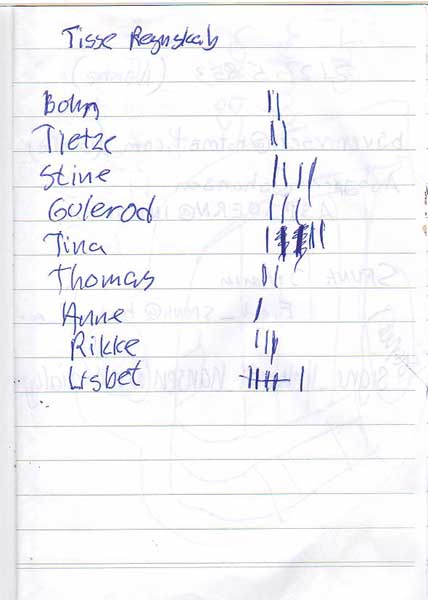 Tisse Regnskab
Bohm ||
Tietze ||
Stine ||||
Gulerod |||
Tina | |||
Thomas ||
Anne |
Rikke |||
Lisbet |||| |